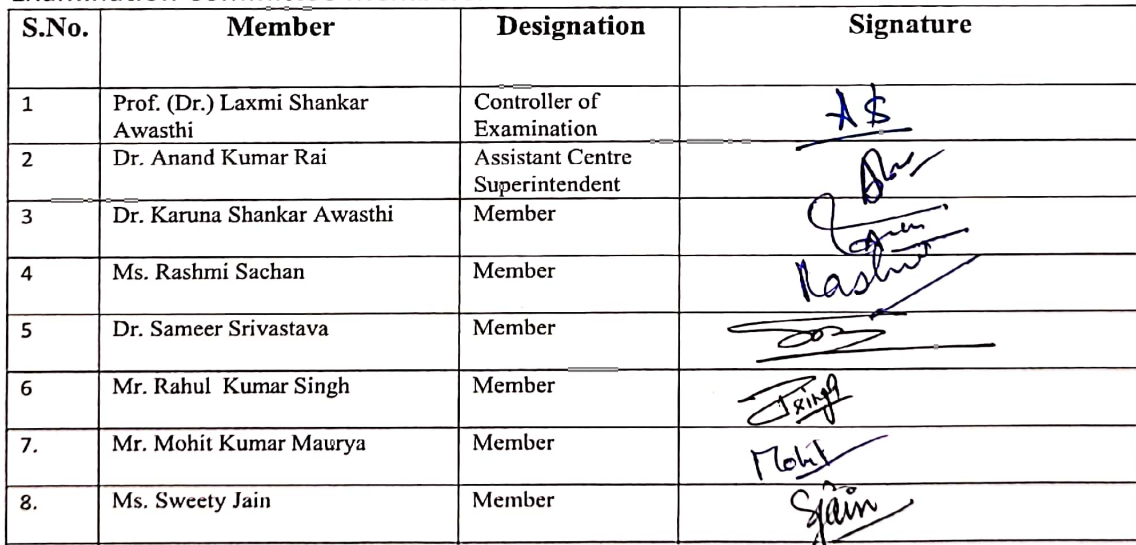 S.No. Member Designation Signature
1 Prof. (Dr.) Laxmi Shankar Controller of
Awasthi Examination
2 Dr. Anand Kumar Rai Assistant Centre
Superintendent
3 Dr. Karuna Shankar Awasthi Member
4 Ms. Rashmi Sachan Member Rashmi
5 Dr. Sameer Srivastava Member
6 Mr. Rahul Kumar Singh Member
7. Mr. Mohit Kumar Maurya Member Mohit
8. Ms. Sweety Jain Member SJain